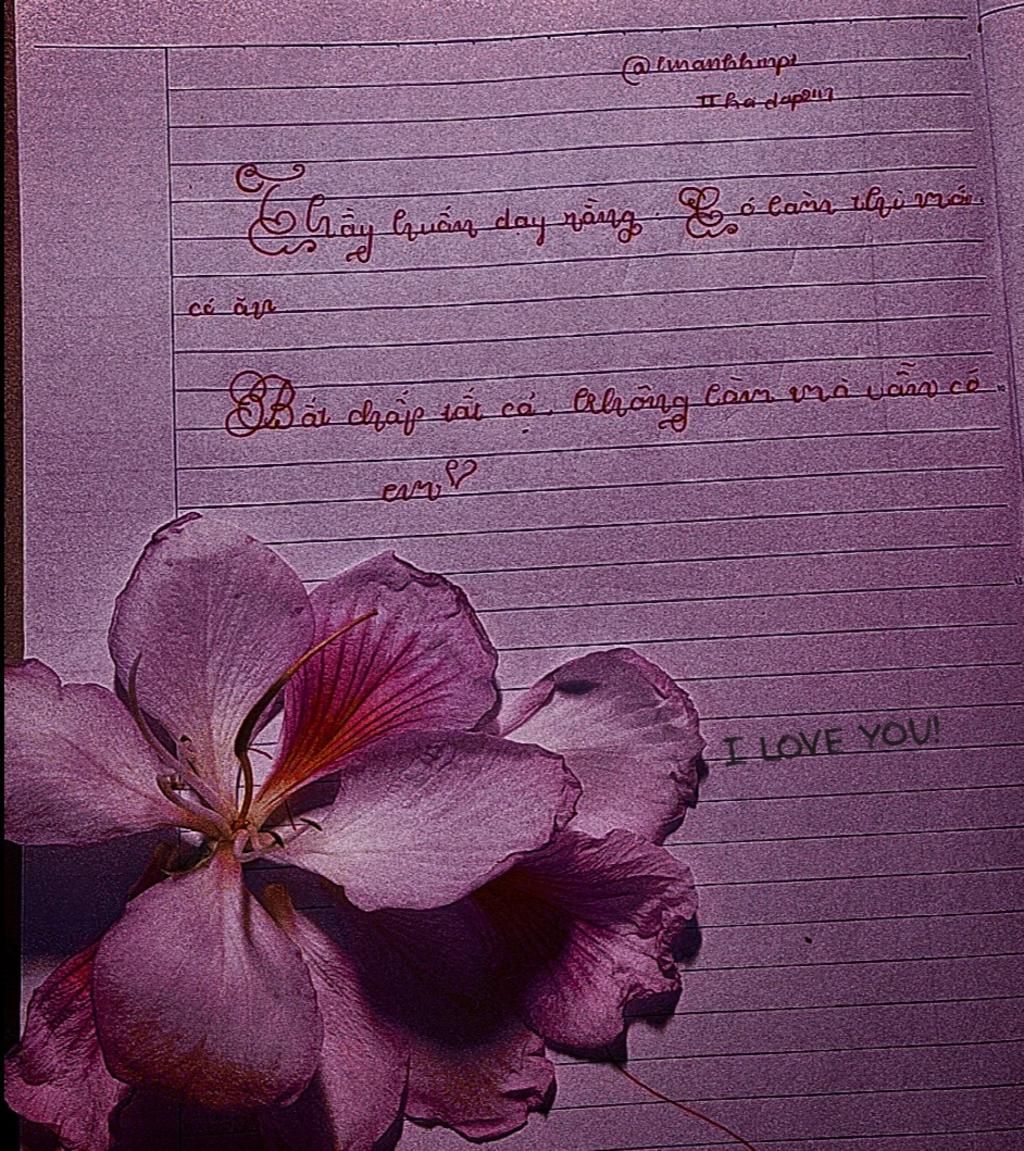 Thầy huấn dạy rằng. Có làm thì mới
có ăn
Bất chấp tất cả. Không làm mà vẫn có
em
I LOVE YOU!